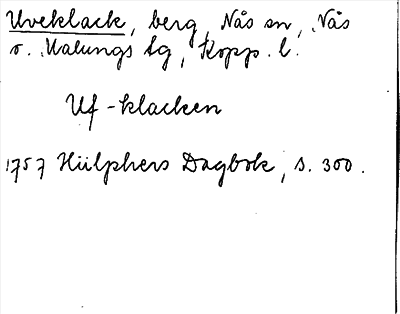 Uveklack, berg, Nås sn, Nås
o. Malungs tg, Kopp. l.
Uf-klacken
1757 Hülphers Dagbok, s. 300.